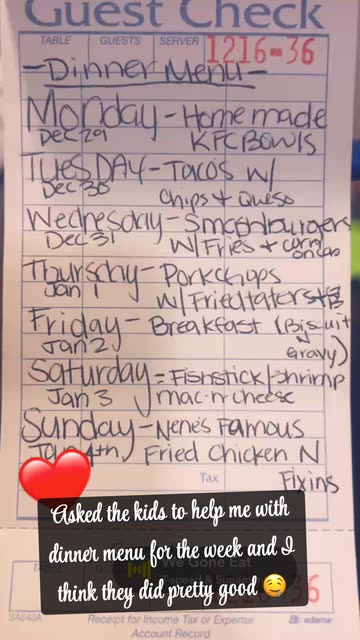 Guest Check
TABLE GUESTS SERVER 1216-36
-Dinner Menu-
Monday - Homemade
Dec 29 KFC BOWLS
TUESDAY - Tacos w/
Dec 30 Chips + Queso
Wednesday - Smashburgers
Dec 31 w/Fries + carm onions
Thursday - Porkchops
Jan 1 w/Friedtaters +
Friday - Breakfast (Bisuit
Jan 2 Gravy)
Saturday = Fishstick/Shrimp
Jan 3 mac-n-cheese
Sunday - Nene's Famous
Jan 4th, Fried Chicken N
Tax Fixins
Asked the kids to help me with
dinner menu for the week and I
think they did pretty good 😊
We Gone Eat
36
SA640A Receipt for Income Tax or Expense adams
Account Record